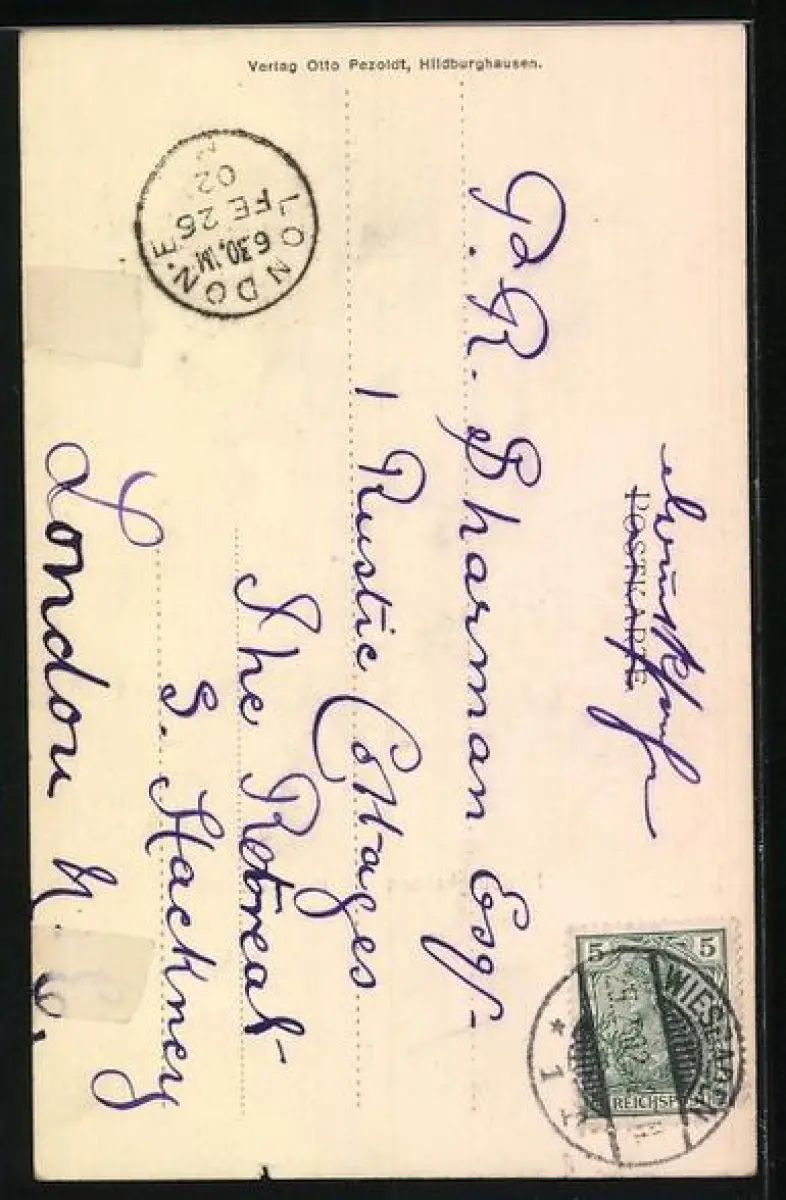 Verlag Otto Pezoldt, Hildburghausen.
POSTKARTE
P. R. Sharman Esqr
1 Rustic Cottages
The Retreat
S. Hackney
London N. E.
LONDON. E
6.30. M
FE 26
02
5 5
REICHSPOST
WIESBADEN
* 1